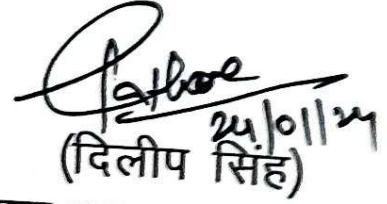 Rathore
24/01/24
(दिलीप सिंह)